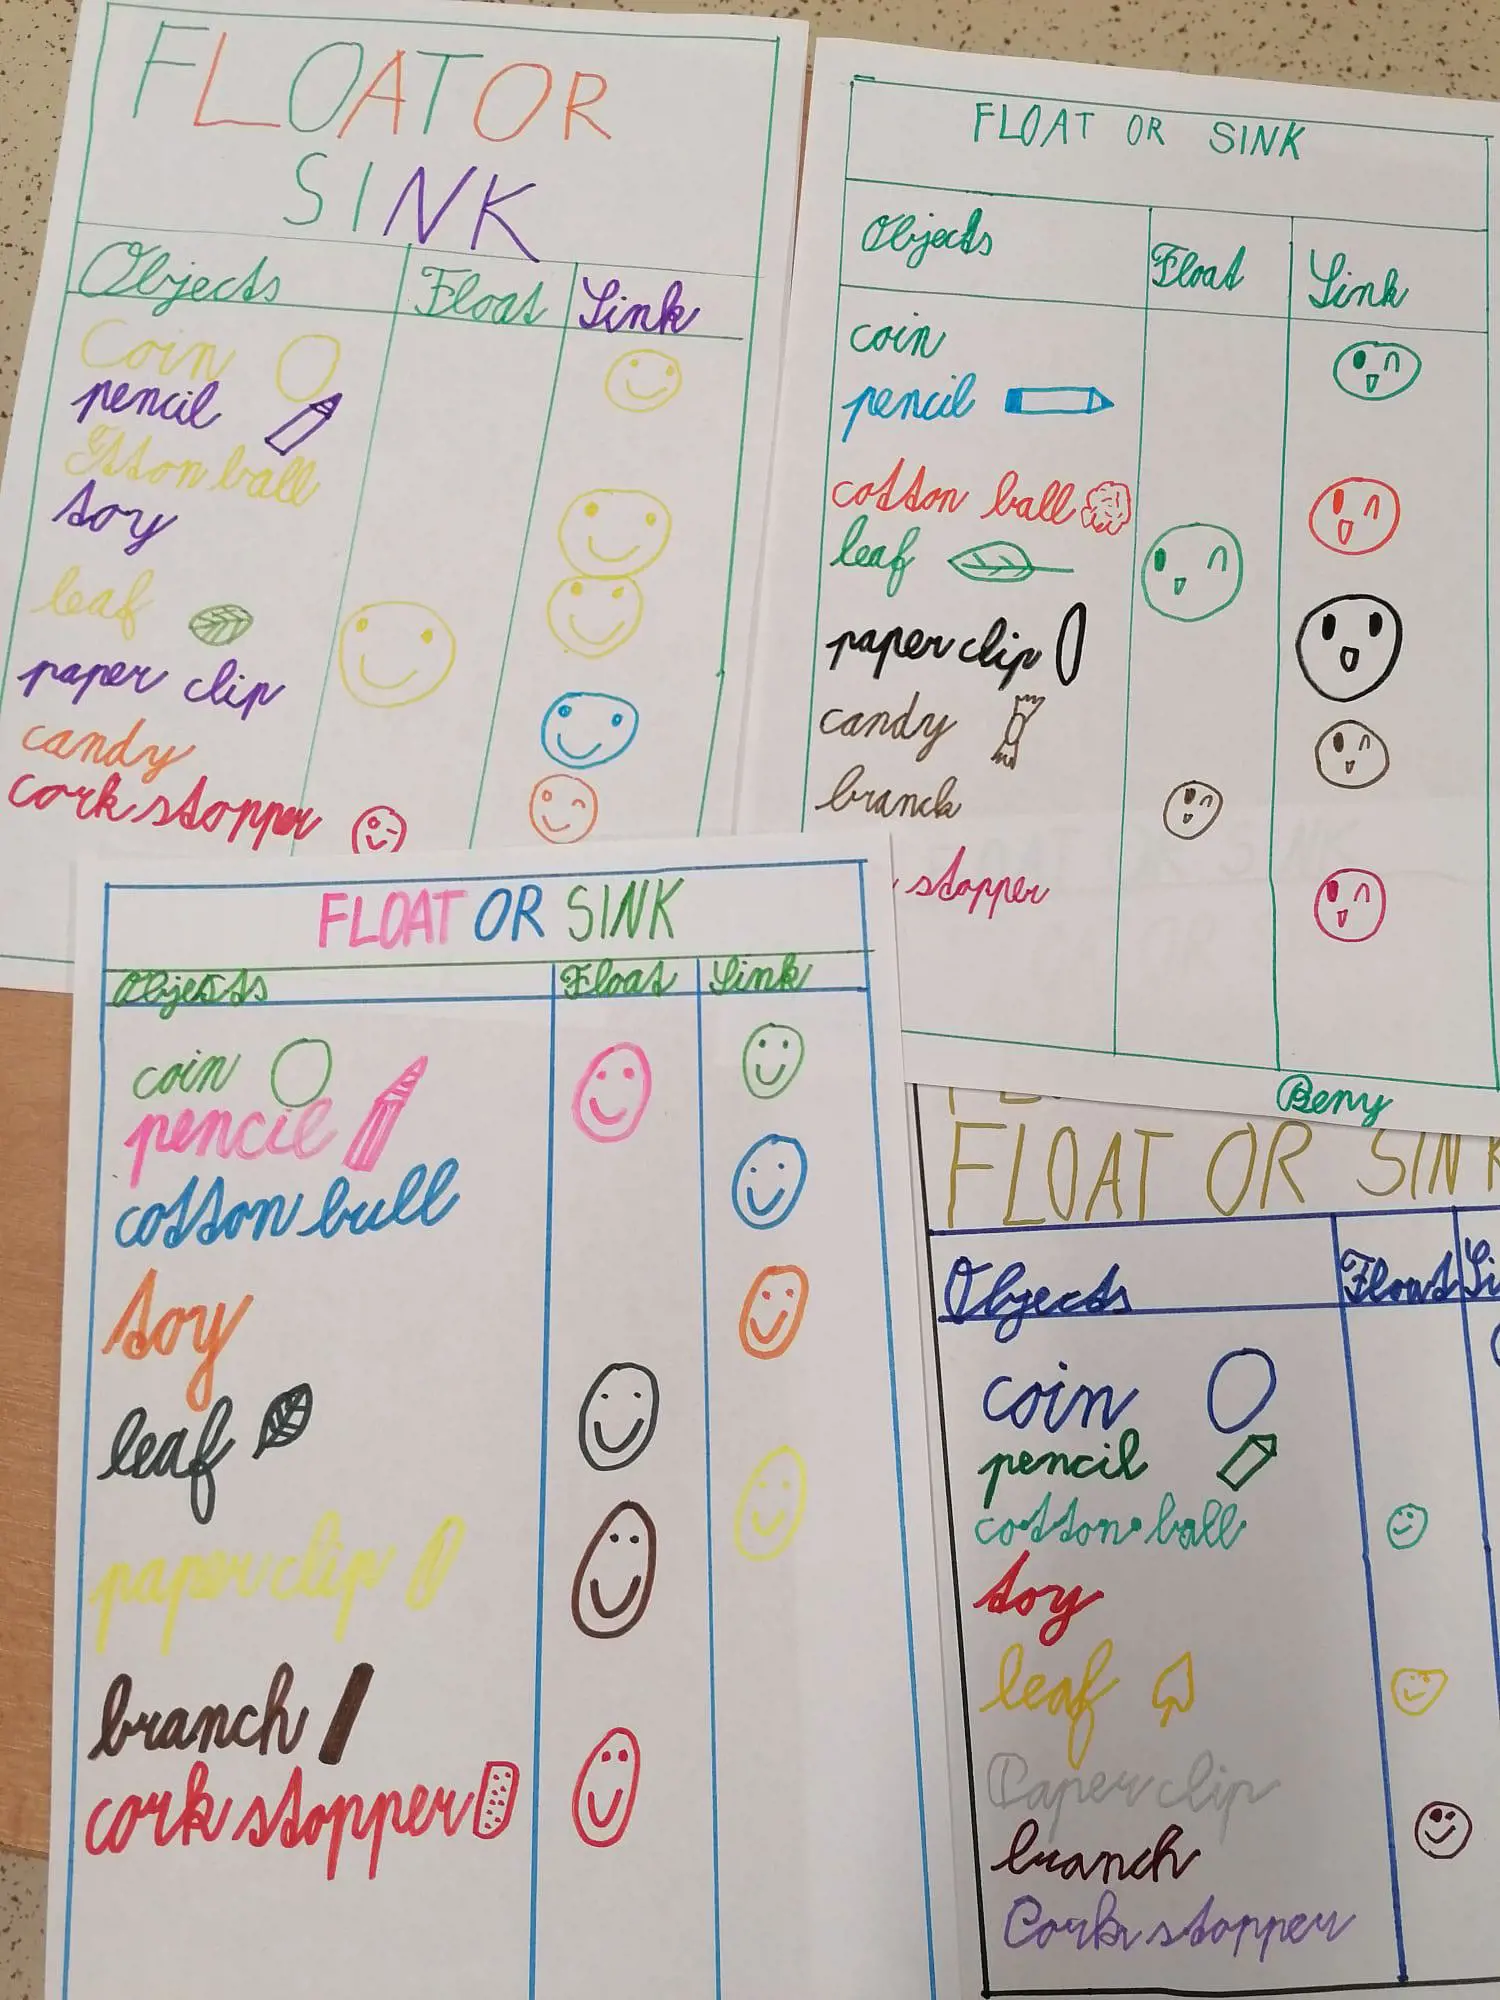 FLOAT OR
SINK
Objects Float Sink
Coin
pencil
toy
leaf
paper clip
candy
cork stopper
FLOAT OR SINK
Objects Float Sink
coin
pencil
cotton ball
leaf
paper clip
candy
branch
stopper
Beny
FLOAT OR SINK
Objects Float Sink
coin
pencil
cotton bull
toy
leaf
paper clip
branch
cork stopper
FLOAT OR SINK
Objects Float Si
coin
pencil
cotton ball
toy
leaf
Paper clip
branch
Cork stopper